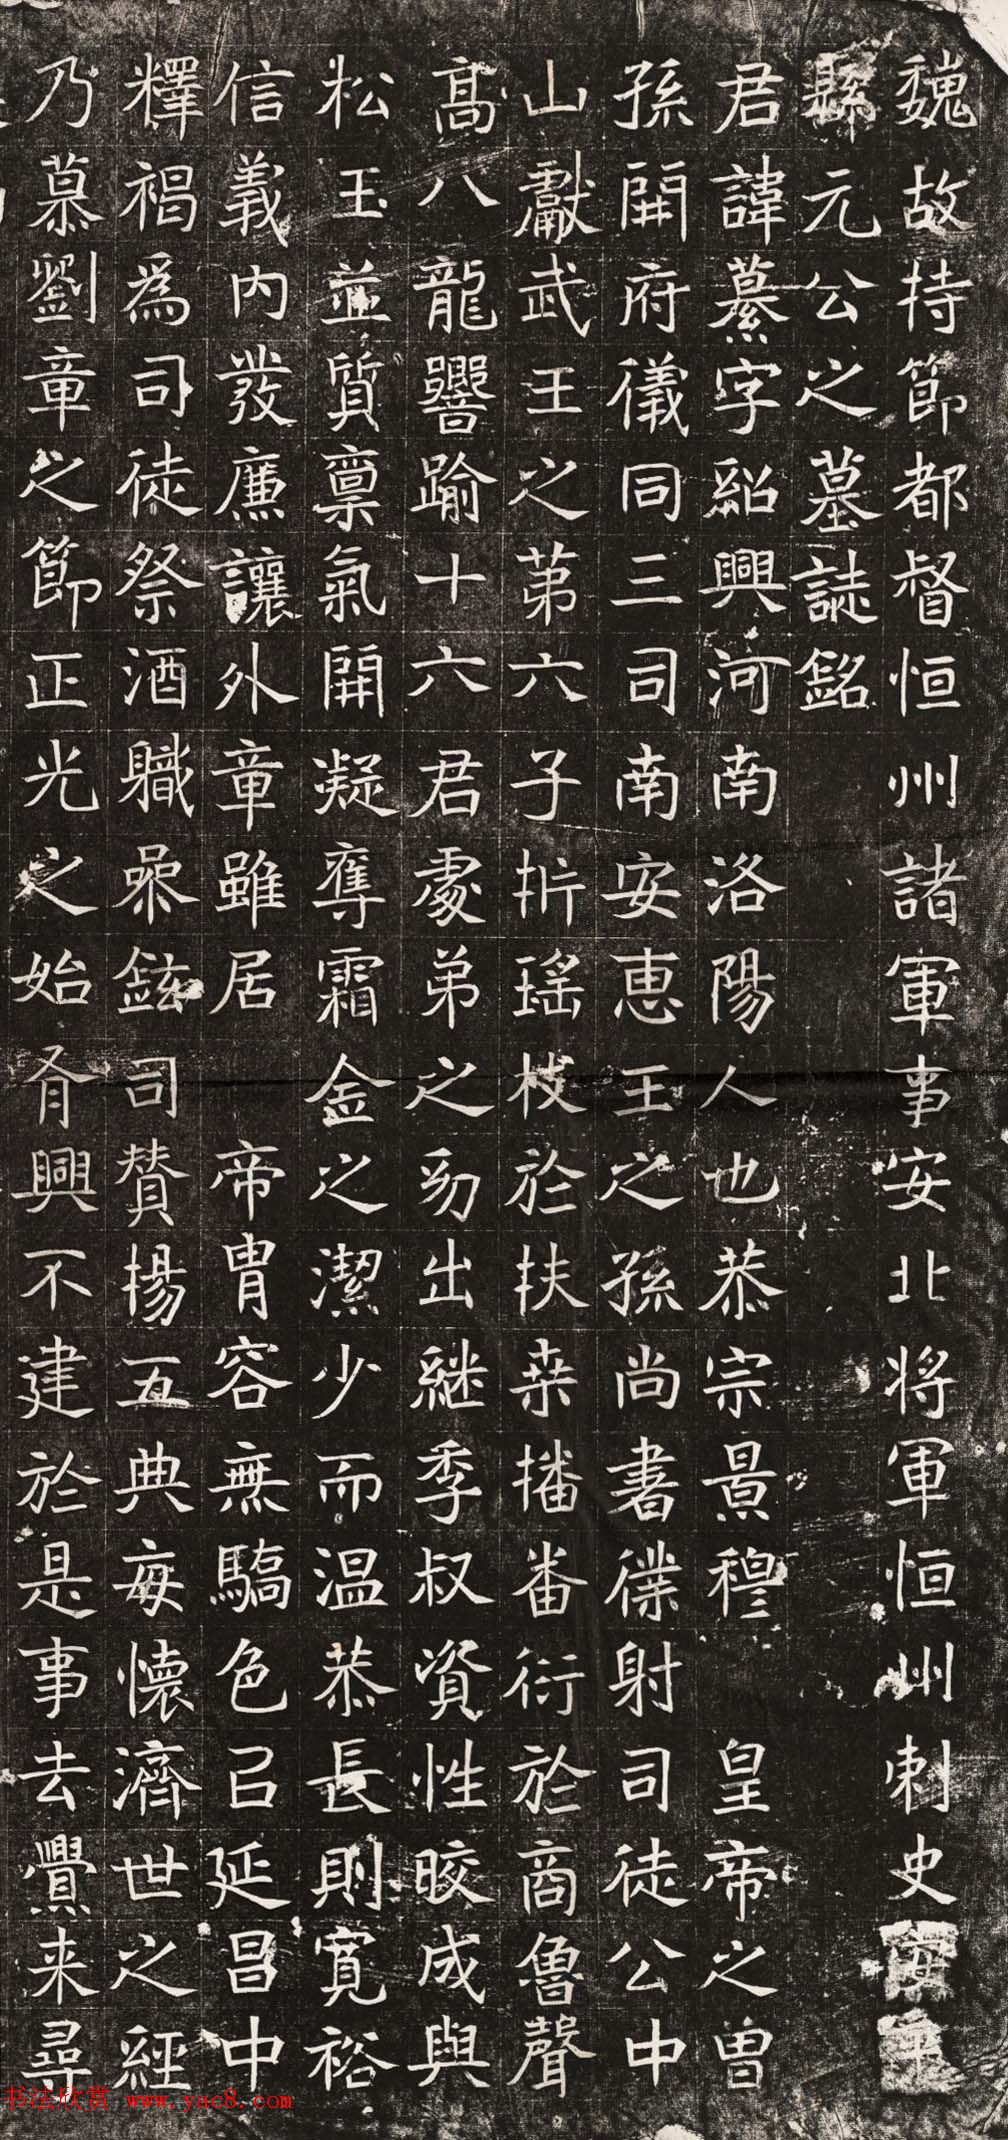 魏故持節都督恒州諸軍事安北將軍恒州刺史安平
縣元公之墓誌銘
君諱纂字紹興河南洛陽人也恭宗景穆皇帝之曾
孫開府儀同三司南安惠王之孫尚書僕射司徒公中
山獻武王之第六子折瑤枝於扶桒播番衍於商魯聲
高八龍響踰十六君處弟之幼出継季叔資性晈成與
松玉並質稟氣開凝奪霜金之潔少而溫恭長則寬裕
信義內發廉讓外章雖居帝胄容無驕色已延昌中
釋褐為司徒祭酒職㕘鉉司賛揚五典每懷濟世之經
乃慕劉章之節正光之始有興不建於是事去舋来尋
书法欣赏 www.yac8.com